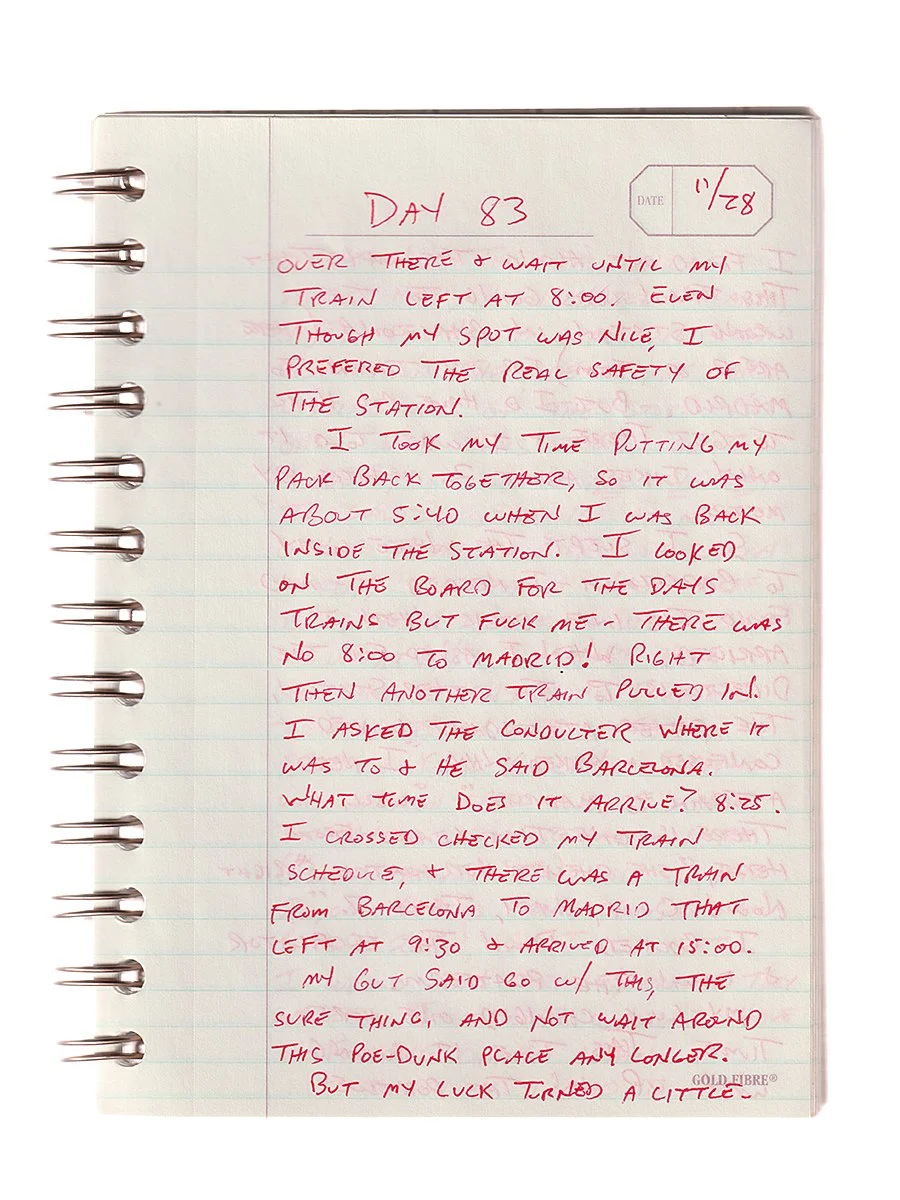 DAY 83
DATE 11/28
OVER THERE & WAIT UNTIL MY
TRAIN LEFT AT 8:00. EVEN
THOUGH MY SPOT WAS NICE, I
PREFERED THE REAL SAFETY OF
THE STATION.
I TOOK MY TIME PUTTING MY
PACK BACK TOGETHER, SO IT WAS
ABOUT 5:40 WHEN I WAS BACK
INSIDE THE STATION. I LOOKED
ON THE BOARD FOR THE DAYS
TRAINS BUT FUCK ME - THERE WAS
NO 8:00 TO MADRID! RIGHT
THEN ANOTHER TRAIN PULLED IN.
I ASKED THE CONDUCTER WHERE IT
WAS TO & HE SAID BARCELONA.
WHAT TIME DOES IT ARRIVE? 8:25.
I CROSSED CHECKED MY TRAIN
SCHEDULE, & THERE WAS A TRAIN
FROM BARCELONA, TO MADRID THAT
LEFT AT 9:30 & ARRIVED AT 15:00.
MY GUT SAID GO W/ THIS, THE
SURE THING, AND NOT WAIT AROUND
THIS POE-DUNK PLACE ANY LONGER.
GOLD FIBRE®
BUT MY LUCK TURNED A LITTLE-